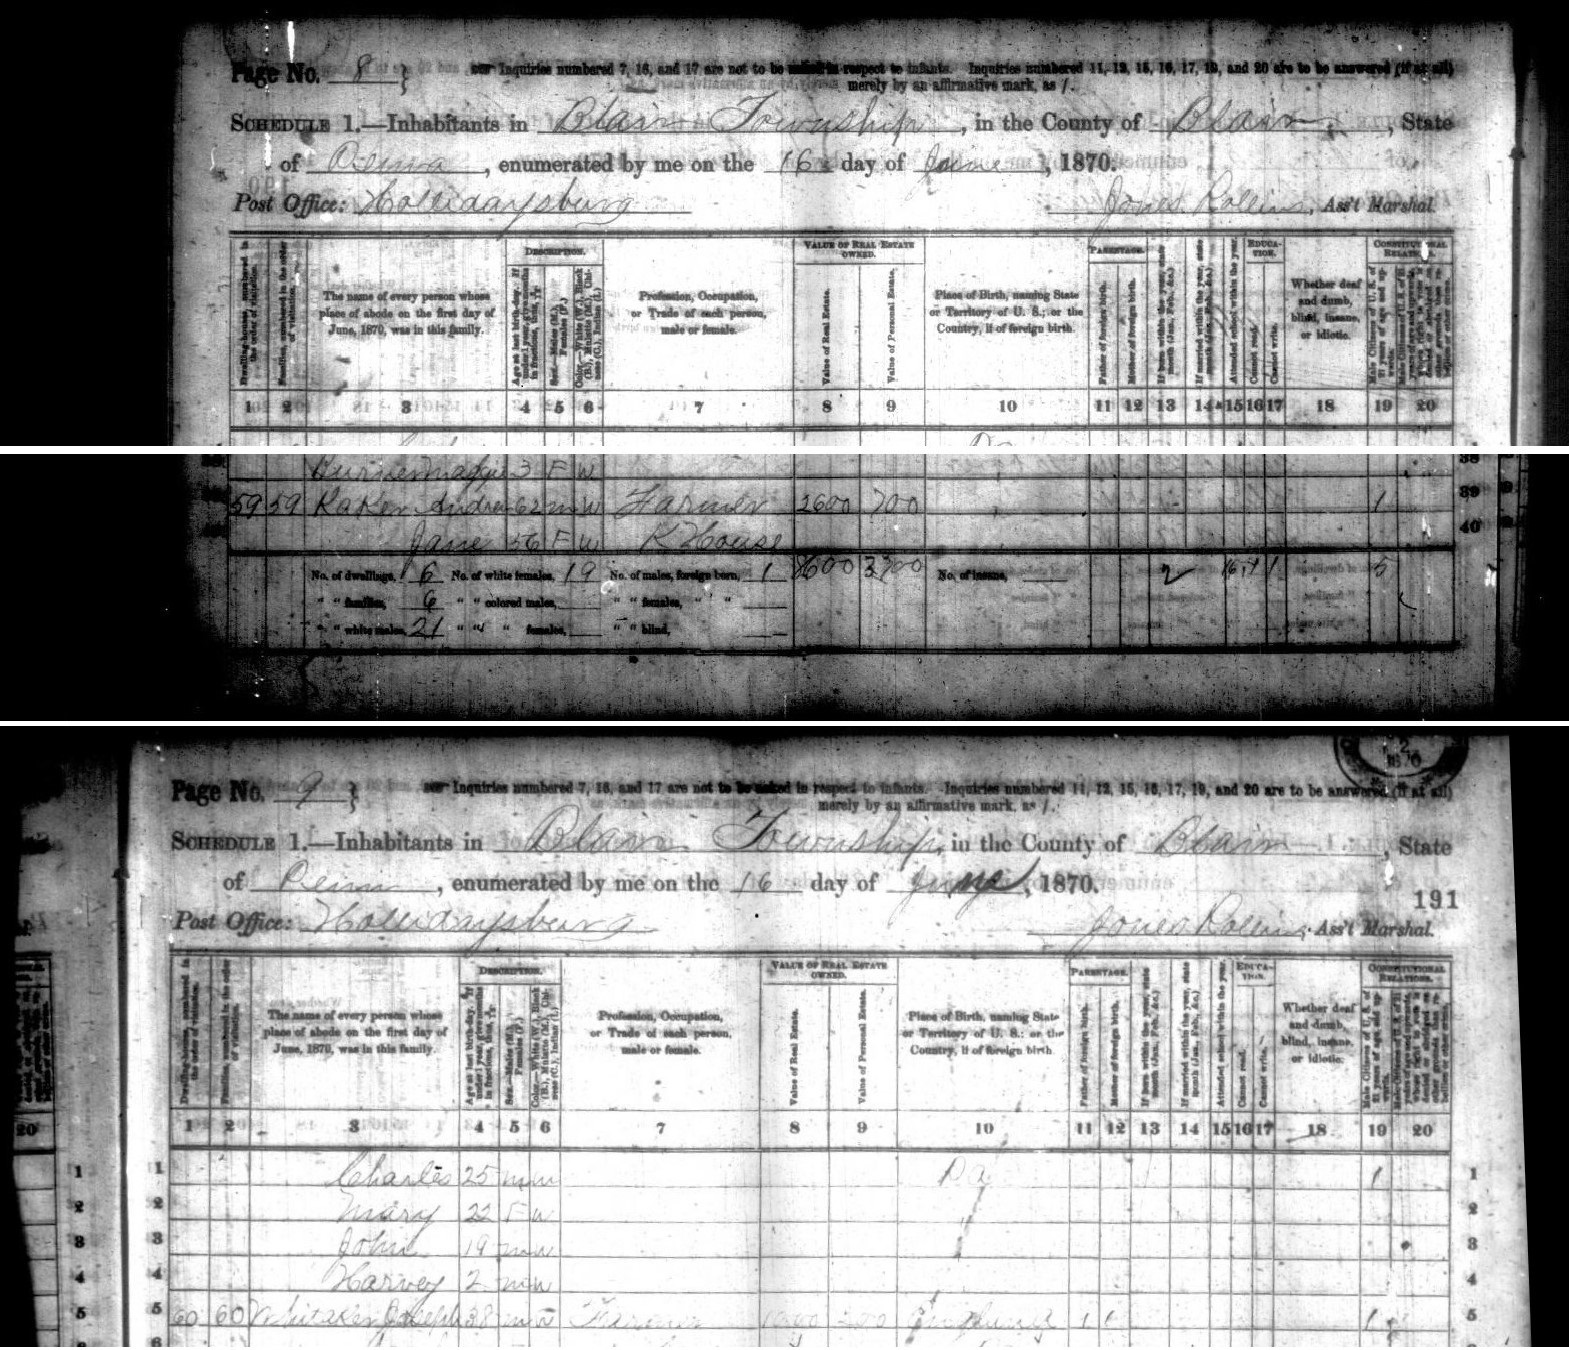 Page No. 8 } Inquiries numbered 7, 16, and 17 are not to be asked in respect to infants. Inquiries numbered 11, 12, 15, 16, 17, 19, and 20 are to be answered (if at all)
merely by an affirmative mark, as /.
SCHEDULE 1.—Inhabitants in Blair Township, in the County of Blair, State
of Penna, enumerated by me on the 16 day of June, 1870.
Post Office: Hollidaysburg Jones Rollins, Ass't Marshal.
DESCRIPTION. VALUE OF REAL ESTATE OWNED. PARENTAGE. EDUCATION. CONSTITUTIONAL RELATIONS.
Dwelling-houses, numbered in the order of visitation.
Families, numbered in the order of visitation.
The name of every person whose place of abode on the first day of June, 1870, was in this family.
Profession, Occupation, or Trade of each person, male or female.
Value of Real Estate.
Value of Personal Estate.
Place of Birth, naming State or Territory of U. S.; or the Country, if of foreign birth.
Father of foreign birth.
Mother of foreign birth.
If born within the year, state month (Jan., Feb., &c.)
If married within the year, state month (Jan., Feb., &c.)
Attended school within the year.
Cannot read.
Cannot write.
Whether deaf and dumb, blind, insane, or idiotic.
1 2 3 4 5 6 7 8 9 10 11 12 13 14 15 16 17 18 19 20
3 F W 38
59 59 Raker Andrew 62 m W Farmer 2600 700 1 39
Jane 56 F W K House 40
No. of dwellings, 6 No. of white females, 19 No. of males, foreign born, 1 No. of insane, 2 5
" " families, 6 " " colored males, " " females, " "
" " white males, 21 " " " females, " " blind,
Page No. 9 } Inquiries numbered 7, 16, and 17 are not to be asked in respect to infants. Inquiries numbered 11, 12, 15, 16, 17, 19, and 20 are to be answered (if at all)
merely by an affirmative mark, as /.
SCHEDULE 1.—Inhabitants in Blair Township, in the County of Blair, State
of Penn, enumerated by me on the 16 day of June, 1870.
191
Post Office: Hollidaysburg Jones Rollins, Ass't Marshal.
DESCRIPTION. VALUE OF REAL ESTATE OWNED. PARENTAGE. EDUCATION. CONSTITUTIONAL RELATIONS.
Dwelling-houses, numbered in the order of visitation.
Families, numbered in the order of visitation.
The name of every person whose place of abode on the first day of June, 1870, was in this family.
Profession, Occupation, or Trade of each person, male or female.
Value of Real Estate.
Value of Personal Estate.
Place of Birth, naming State or Territory of U. S.; or the Country, if of foreign birth.
Father of foreign birth.
Mother of foreign birth.
If born within the year, state month (Jan., Feb., &c.)
If married within the year, state month (Jan., Feb., &c.)
Attended school within the year.
Cannot read.
Cannot write.
Whether deaf and dumb, blind, insane, or idiotic.
20 1 2 3 4 5 6 7 8 9 10 11 12 13 14 15 16 17 18 19 20
1 1 Charles 25 m w Pa 1 1
2 2 Mary 22 F w 2
3 3 John 19 m w 3
4 4 Harvey 2 m w 4
5 5 60 60 Whitaker Joseph 38 m w Farmer England 1 1 1 5
6 6